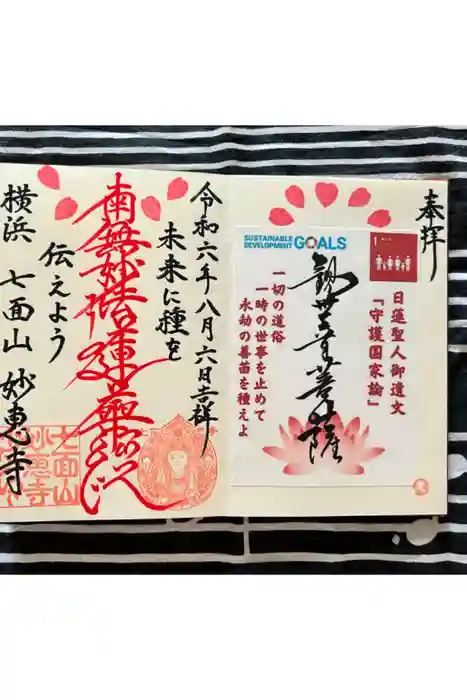 奉拝
日蓮聖人御遺文
「守護国家論」
1
SUSTAINABLE
DEVELOPMENT
GOALS
観世音菩薩
一切の道俗
一時の世事を止めて
永劫の善苗を種えよ
令和六年八月六日吉祥
未来に種を
南無妙法蓮華経
伝えよう
横浜 七面山 妙恵寺
七面山
妙恵寺